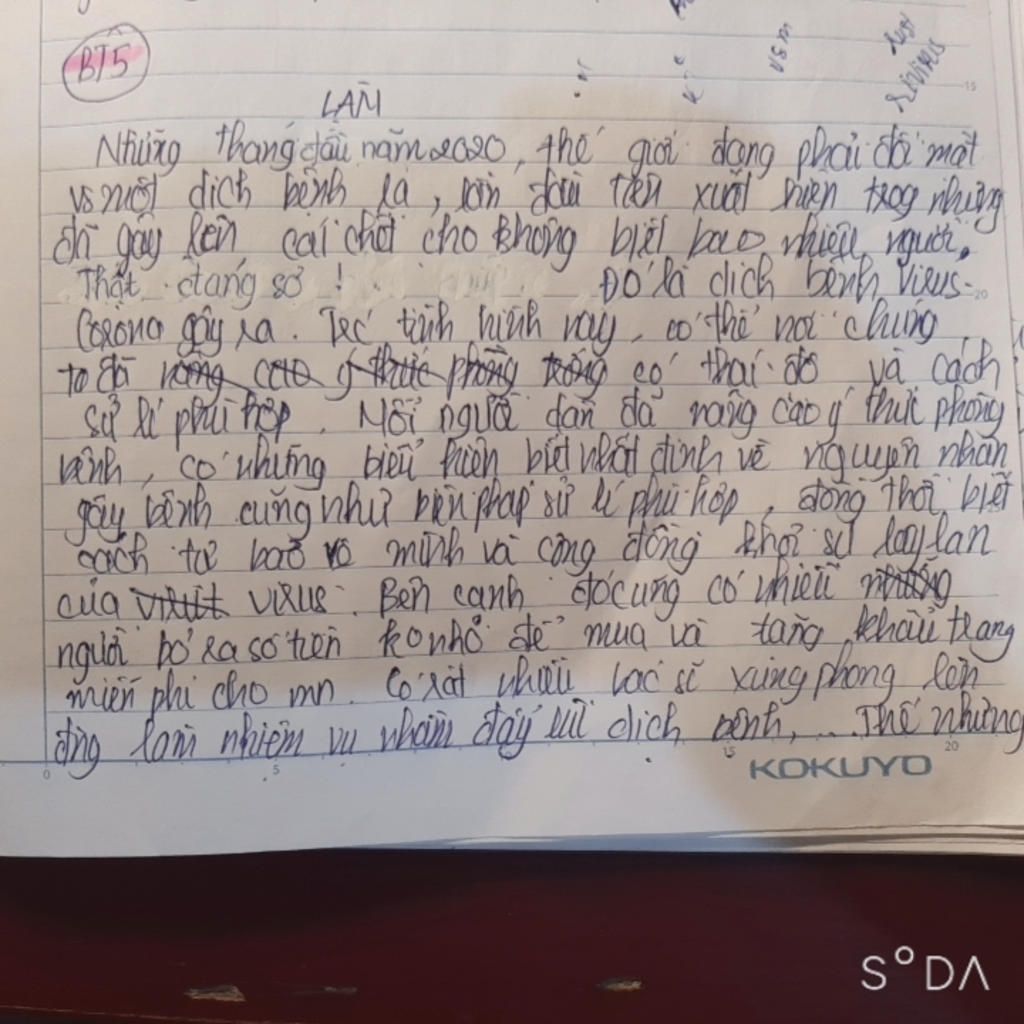 BT5
LÀM
Những tháng đầu năm 2020, thế giới đang phải đối mặt
vs một dịch bệnh lạ, lần đầu tiên xuất hiện trog nhưng
đã gây lên cái chết cho không biết bao nhiêu người.
Thật đáng sợ! Đó là dịch bệnh Virus-
Corona gây ra. Trc tình hình này, có thể nói chúng
ta đã nâng cao ý thức phòng trống có thái độ và cách
sử lí phù hợp. Mỗi người dân đã nâng cao ý thức phòng
bệnh, có những biểu hiện biết nhất định về nguyên nhân
gây bệnh cũng như biện pháp sử lí phù hợp, đồng thời biết
cách tự bảo vệ mình và cộng đồng khỏi sự lây lan
của virut virus. Bên cạnh đó cũng có nhiều những
người bỏ ra số tiền ko nhỏ để mua và tặng khẩu trang
miễn phí cho mn. Có rất nhiều bác sĩ xung phong lên
đg làm nhiệm vụ nhằm đẩy lùi dịch bệnh,... Thế nhưng
15
20
0
5
15
20
KOKUYO
S°DA